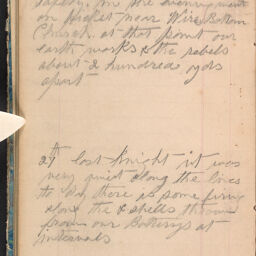 safely, in the evening went
on picket near Wire Bottom
Church. at that point our
earth works & the rebels
about 2 hundred yds
apart
27th last knight it was
very quiet along the lines
to day there is some firing
along the & shells thrown
from our Batterys at
intervals